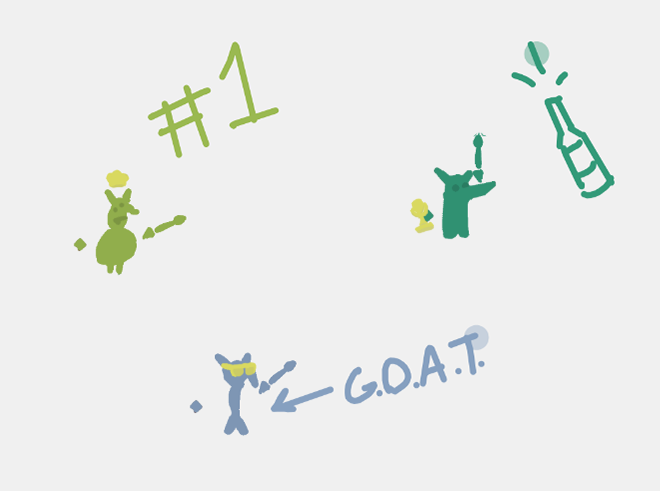 #1
G.O.A.T.